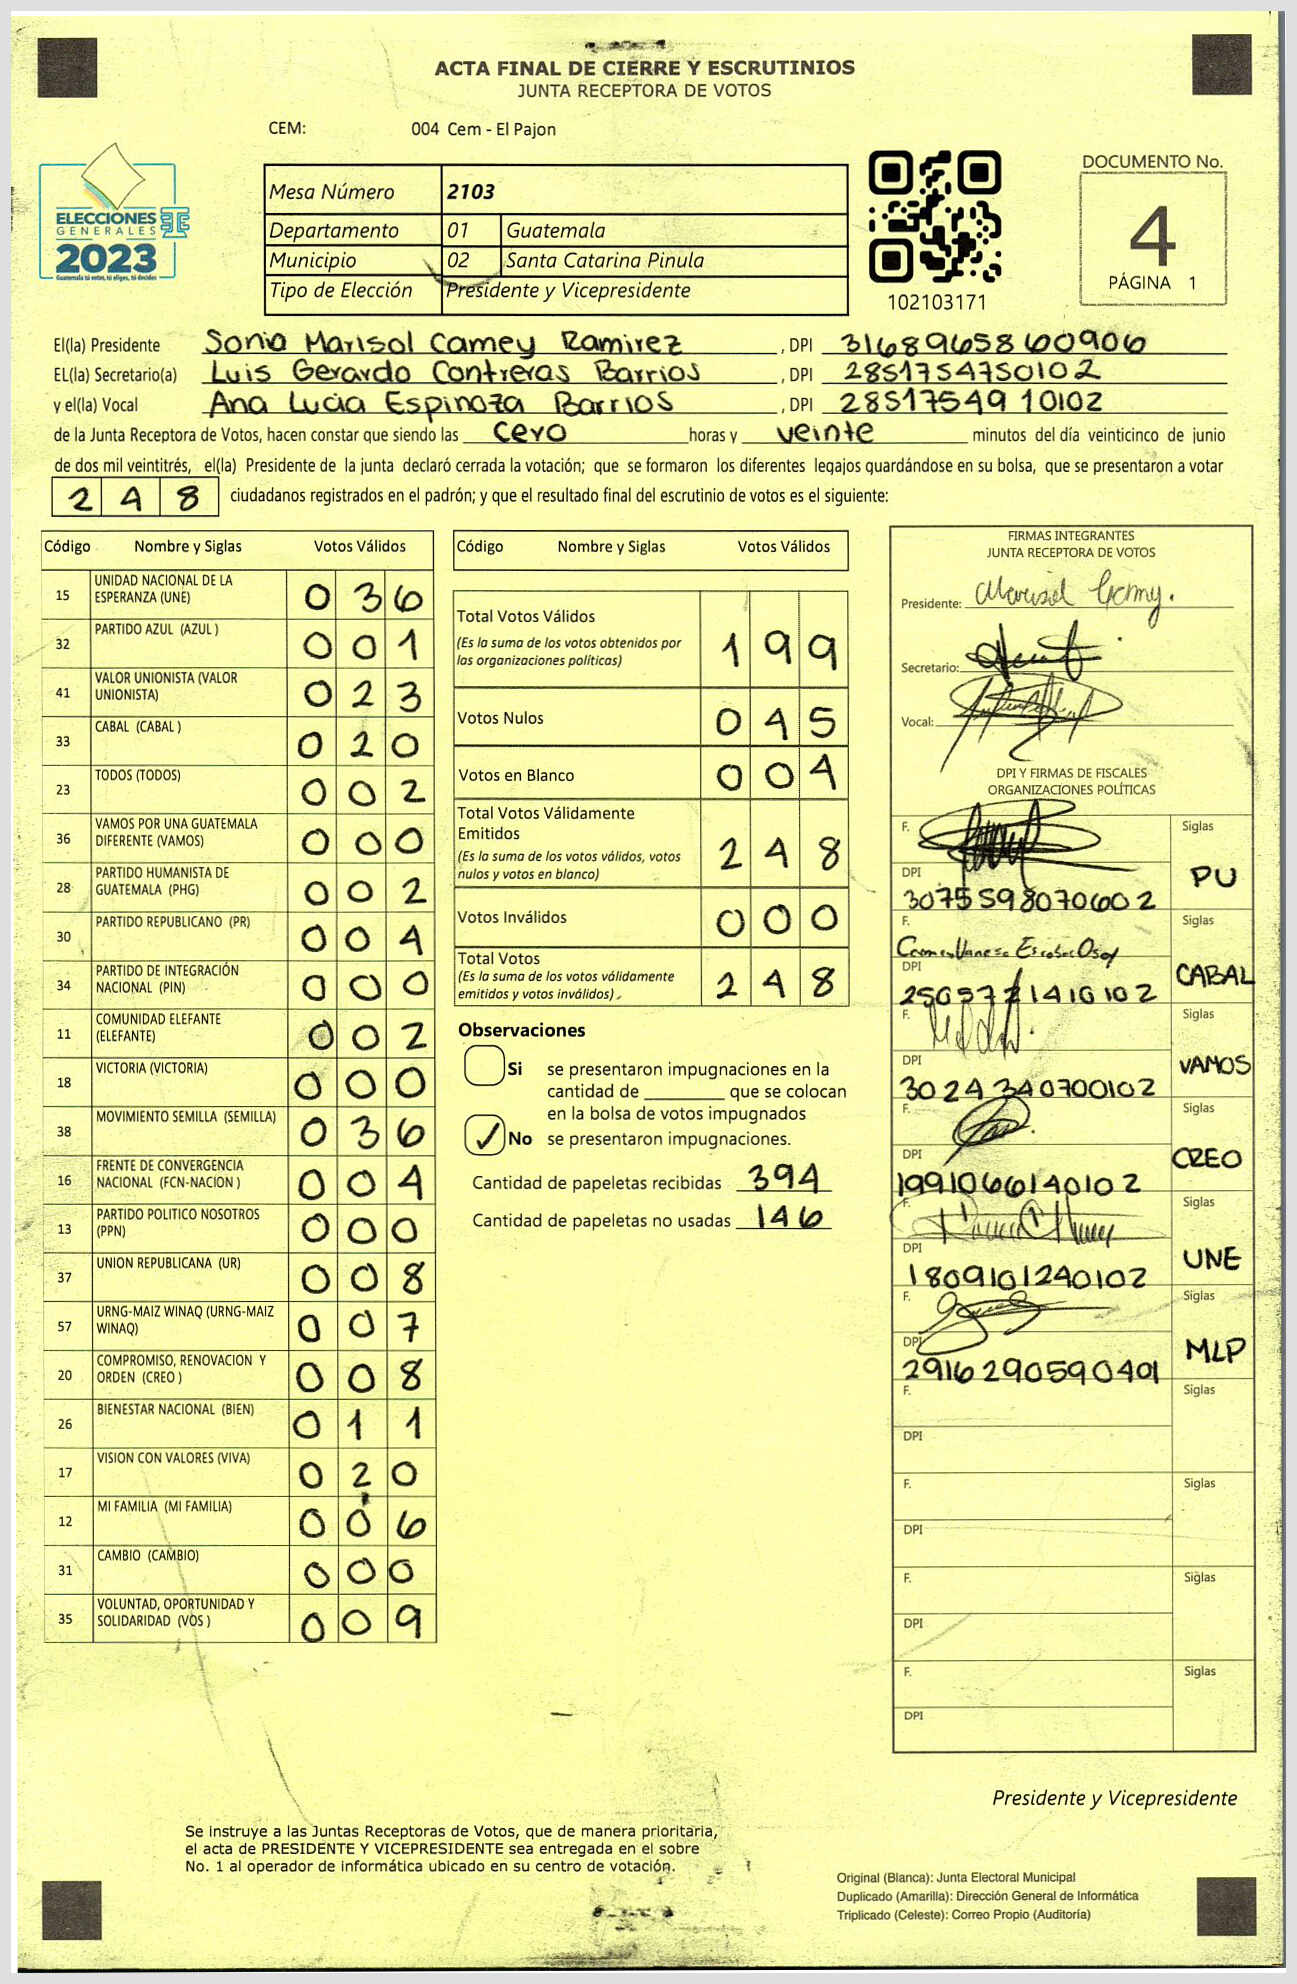 ACTA FINAL DE CIERRE Y ESCRUTINIOS
JUNTA RECEPTORA DE VOTOS
CEM: 004 Cem - El Pajon
ELECCIONES
GENERALES
2023
Guatemala tú votas, tú eliges, tú decides
Mesa Número 2103
Departamento 01 Guatemala
Municipio 02 Santa Catarina Pinula
Tipo de Elección Presidente y Vicepresidente
102103171
DOCUMENTO No.
4
PÁGINA 1
El(la) Presidente Sonia Marisol Camey Ramirez , DPI 3168965860906
EL(la) Secretario(a) Luis Gerardo Contreras Barrios , DPI 2851754750102
y el(la) Vocal Ana Lucia Espinoza Barrios , DPI 2851754910102
de la Junta Receptora de Votos, hacen constar que siendo las cero horas y veinte minutos del día veinticinco de junio
de dos mil veintitrés, el(la) Presidente de la junta declaró cerrada la votación; que se formaron los diferentes legajos guardándose en su bolsa, que se presentaron a votar
248 ciudadanos registrados en el padrón; y que el resultado final del escrutinio de votos es el siguiente:
Código Nombre y Siglas Votos Válidos
15 UNIDAD NACIONAL DE LA ESPERANZA (UNE) 036
32 PARTIDO AZUL (AZUL ) 001
41 VALOR UNIONISTA (VALOR UNIONISTA) 023
33 CABAL (CABAL ) 020
23 TODOS (TODOS) 002
36 VAMOS POR UNA GUATEMALA DIFERENTE (VAMOS) 000
28 PARTIDO HUMANISTA DE GUATEMALA (PHG) 002
30 PARTIDO REPUBLICANO (PR) 004
34 PARTIDO DE INTEGRACIÓN NACIONAL (PIN) 000
11 COMUNIDAD ELEFANTE (ELEFANTE) 002
18 VICTORIA (VICTORIA) 000
38 MOVIMIENTO SEMILLA (SEMILLA) 036
16 FRENTE DE CONVERGENCIA NACIONAL (FCN-NACION ) 004
13 PARTIDO POLITICO NOSOTROS (PPN) 000
37 UNION REPUBLICANA (UR) 008
57 URNG-MAIZ WINAQ (URNG-MAIZ WINAQ) 007
20 COMPROMISO, RENOVACION Y ORDEN (CREO ) 008
26 BIENESTAR NACIONAL (BIEN) 011
17 VISION CON VALORES (VIVA) 020
12 MI FAMILIA (MI FAMILIA) 006
31 CAMBIO (CAMBIO) 000
35 VOLUNTAD, OPORTUNIDAD Y SOLIDARIDAD (VOS ) 009
Código Nombre y Siglas Votos Válidos
Total Votos Válidos 199
(Es la suma de los votos obtenidos por
las organizaciones políticas)
Votos Nulos 045
Votos en Blanco 004
Total Votos Válidamente
Emitidos 248
(Es la suma de los votos válidos, votos
nulos y votos en blanco)
Votos Inválidos 000
Total Votos 248
(Es la suma de los votos válidamente
emitidos y votos inválidos)
Observaciones
Si se presentaron impugnaciones en la
cantidad de ________ que se colocan
en la bolsa de votos impugnados
✓ No se presentaron impugnaciones.
Cantidad de papeletas recibidas 394
Cantidad de papeletas no usadas 146
FIRMAS INTEGRANTES
JUNTA RECEPTORA DE VOTOS
Presidente:
Secretario:
Vocal:
DPI Y FIRMAS DE FISCALES
ORGANIZACIONES POLÍTICAS
F. Siglas
DPI PU
3075598070602
F. Siglas
DPI CABAL
F. Siglas
DPI VAMOS
3024340700102
F. Siglas
DPI CREO
1991066140102
F. Siglas
DPI UNE
1809101240102
F. Siglas
DPI MLP
2916290590401
F. Siglas
DPI
F. Siglas
DPI
F. Siglas
DPI
F. Siglas
DPI
Presidente y Vicepresidente
Se instruye a las Juntas Receptoras de Votos, que de manera prioritaria,
el acta de PRESIDENTE Y VICEPRESIDENTE sea entregada en el sobre
No. 1 al operador de informática ubicado en su centro de votación.
Original (Blanca): Junta Electoral Municipal
Duplicado (Amarilla): Dirección General de Informática
Triplicado (Celeste): Correo Propio (Auditoría)